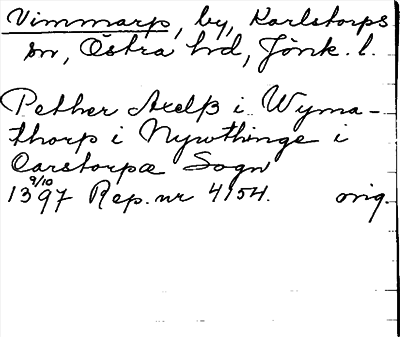 Vimmarp, by, Karlstorps
sn, Östra hd, Jönk. l.
Pether Axelß i Wyma-
thorp i Nywthinge i
Carstorpæ Sogn
1397 9/10 Rep. nr 4154. orig.